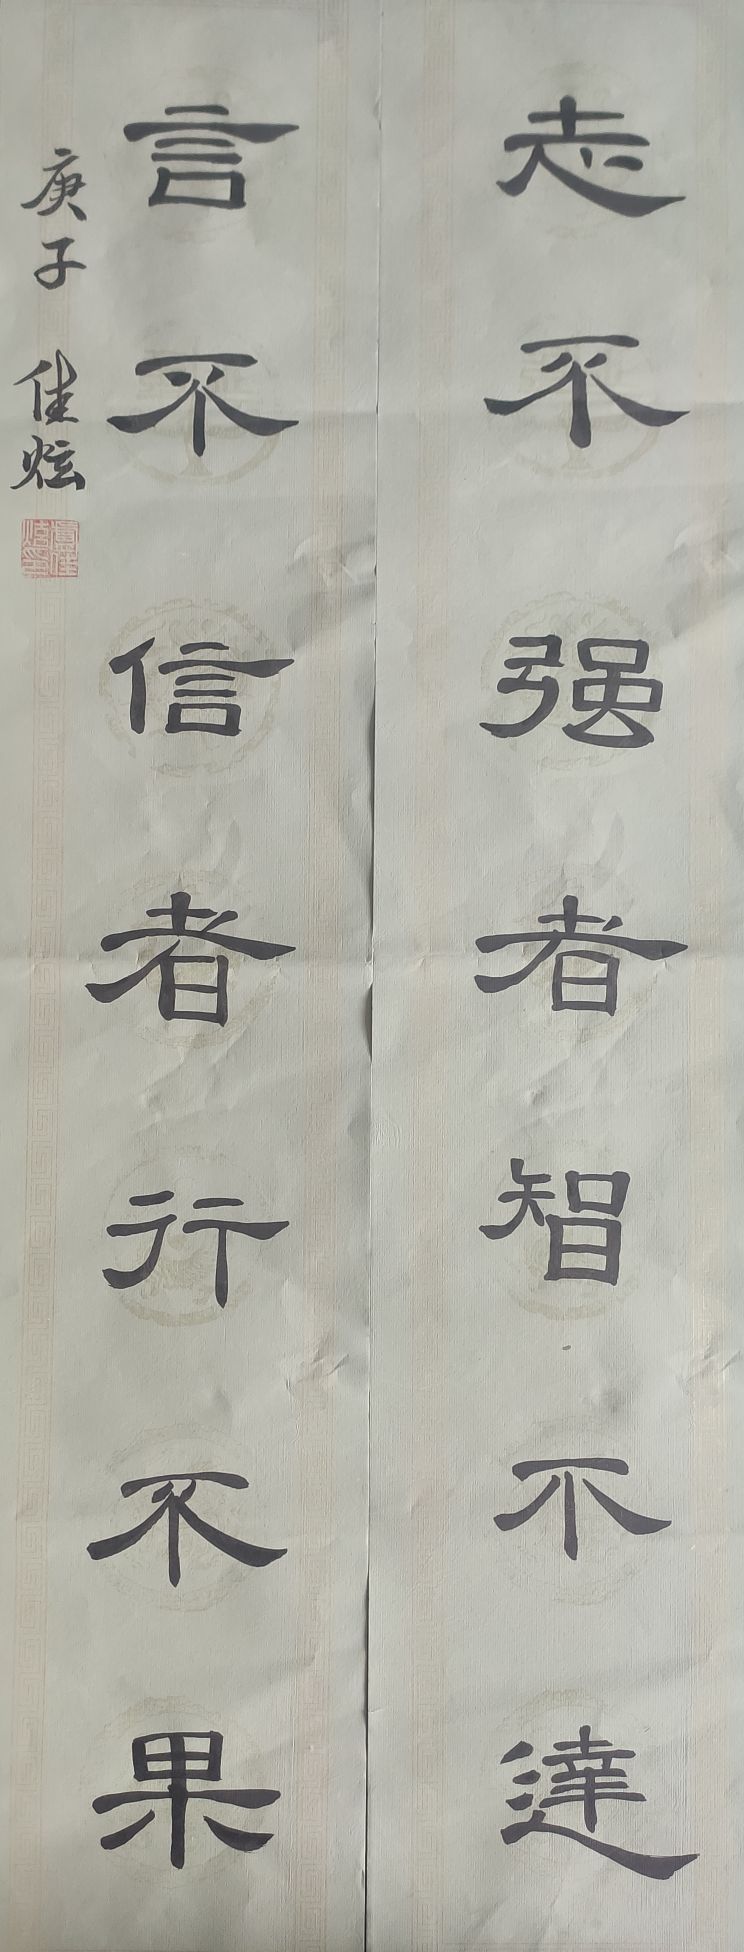 志不强者智不達
言不信者行不果
庚子 佳炫